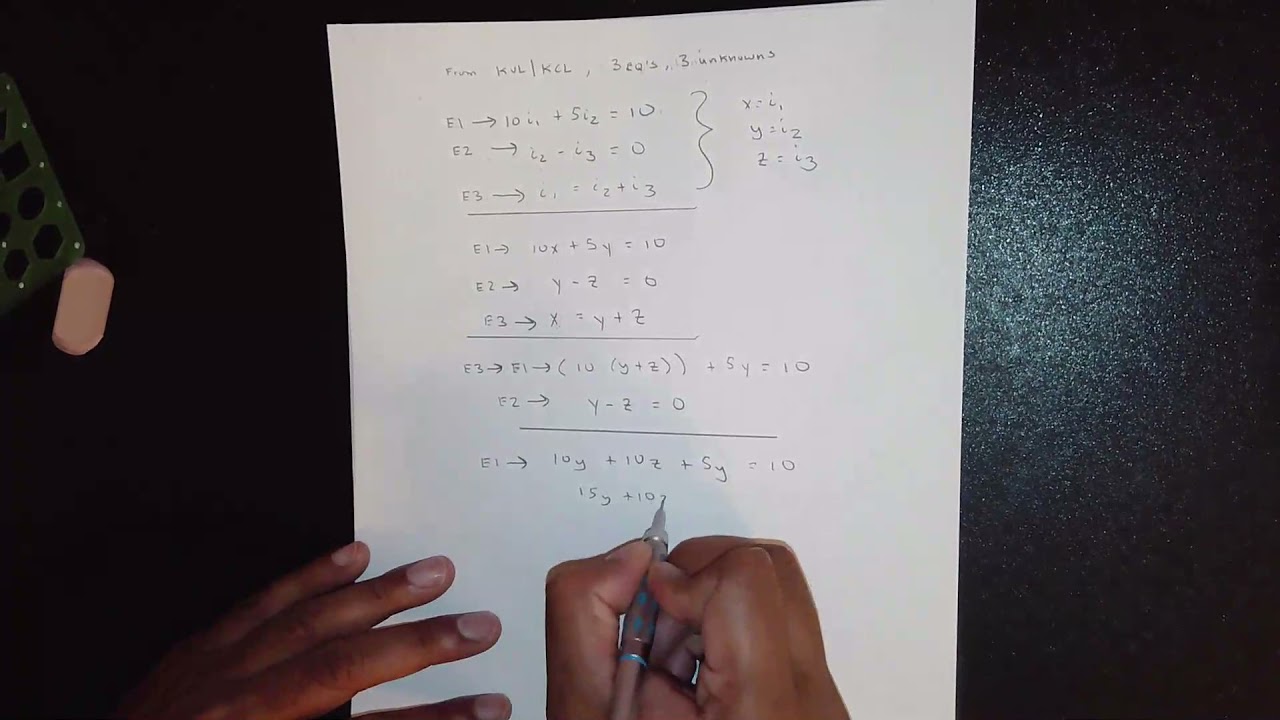 From KVL/KCL, 3 eq's, 3 unknowns
E1 → 10i₁ + 5i₂ = 10
E2 → i₂ - i₃ = 0
E3 → i₁ = i₂ + i₃
x = i₁
y = i₂
z = i₃
E1 → 10x + 5y = 10
E2 → y - z = 0
E3 → x = y + z
E3 → E1 → (10 (y+z)) + 5y = 10
E2 → y - z = 0
E1 → 10y + 10z + 5y = 10
15y + 10z